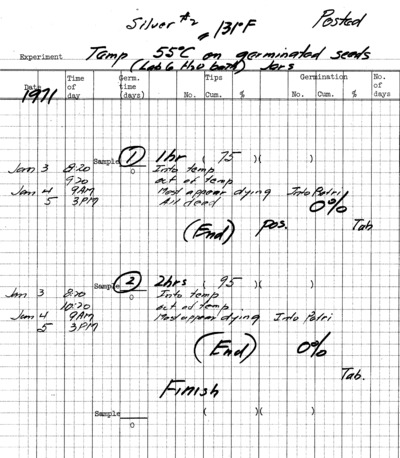 Silver #2 131°F Posted
Experiment Temp 55°C on germinated seeds
(Lab 6 H2O bath) Jars
Date Time of day Germ. time (days) Tips No. Cum. % Germination No. Cum. % No. of days
1971
Sample 1 1hr ( 75 )( )
0
Jan 3 8:20 Into temp
9:20 out of temp
Jan 4 9AM Most appear dying Into Petri
5 3PM All dead 0%
(End) pos. Tab
Sample 2 2hrs ( 95 )( )
0
Jan 3 8:20 Into temp
10:20 out of temp
Jan 4 9AM Most appear dying Into Petri
5 3PM
(End) 0%
Tab.
Finish
Sample ( )( )
0